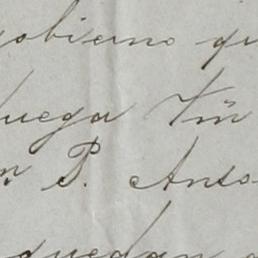 gobierno qu
uega Tin
n P. Anto
quedan